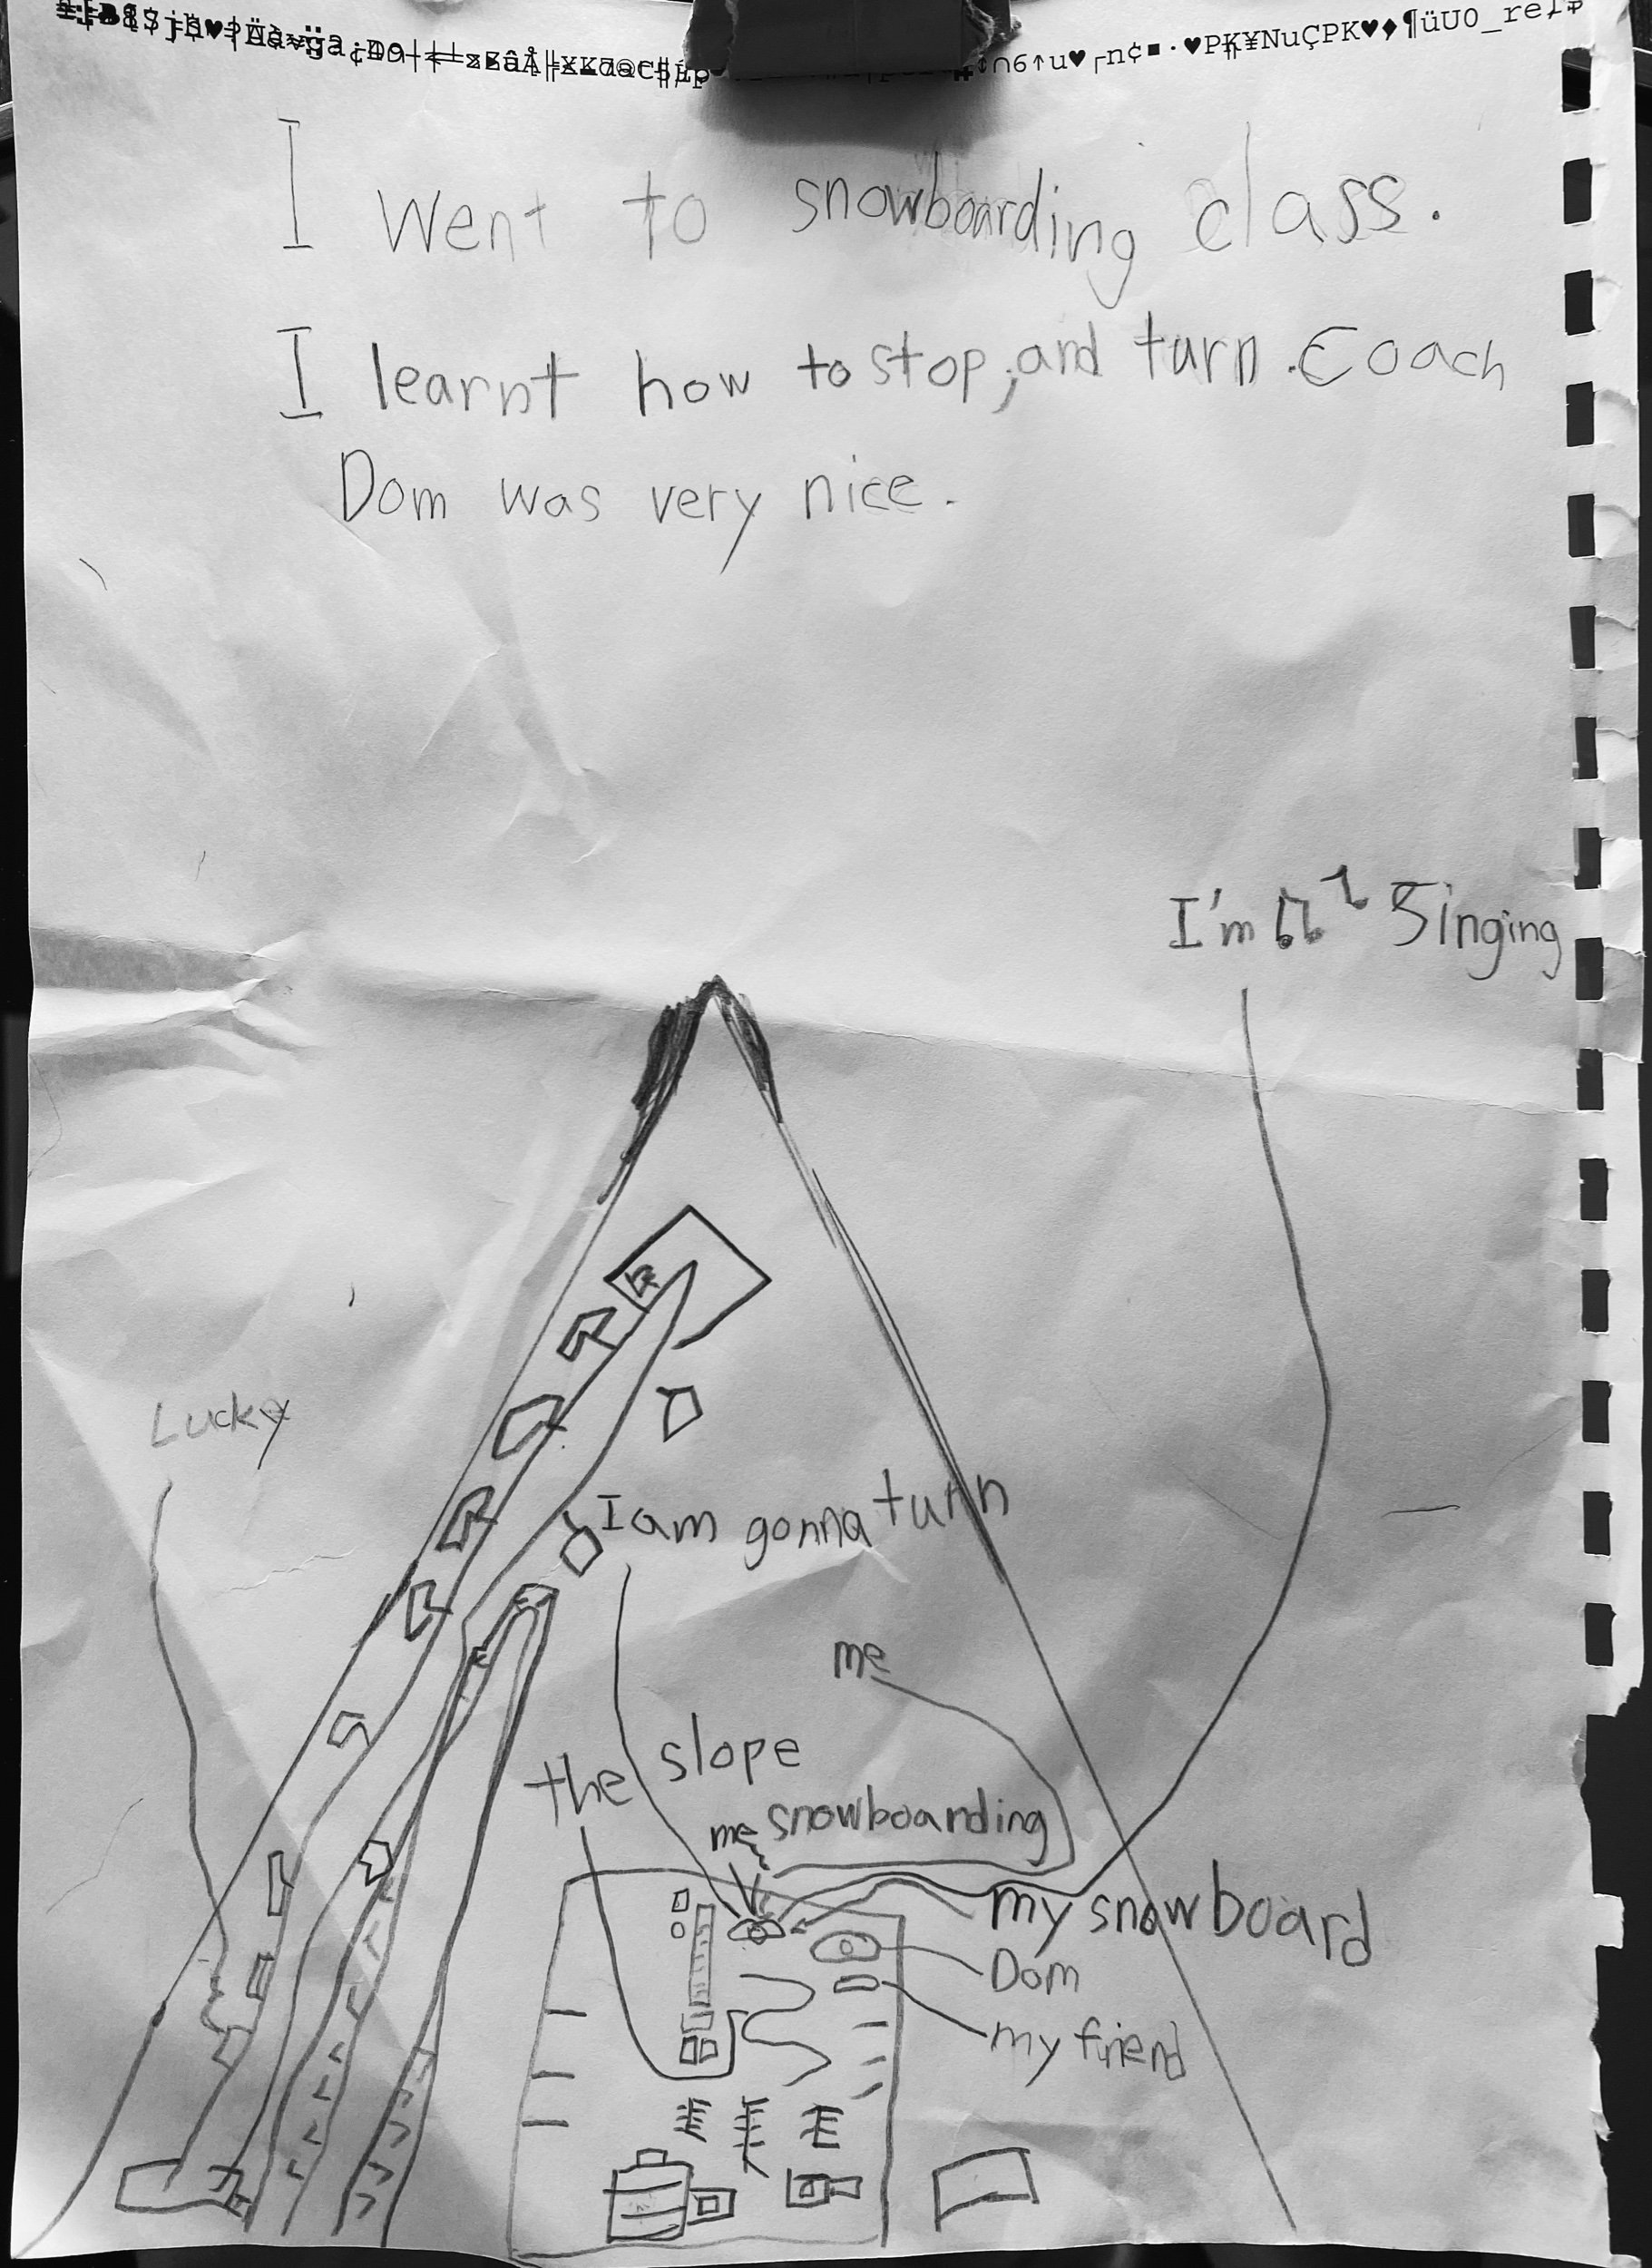 I went to snowboarding class.
I learnt how to stop, and turn. Coach
Dom was very nice.
I'm ♫ Singing
Lucky
I am gonna turn
me
the slope
me snowboarding
my snowboard
Dom
my friend